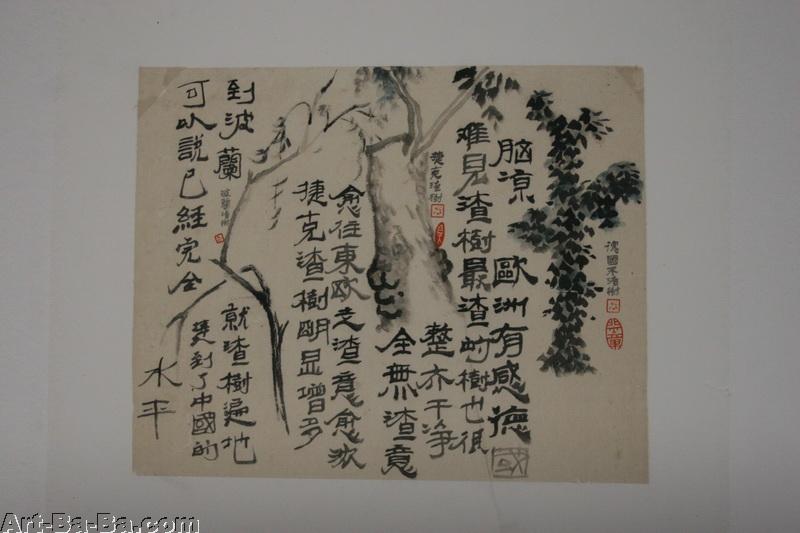 脑凉 歐洲有感德
國
难見渣樹最渣的樹也很
整齐干净
全無渣意
愈往東欧走渣意愈浓
捷克渣樹明显增多
到波蘭
就渣樹遍地
可以説已經完全
達到了中國的
水平
德國不渣樹
捷克渣樹
波蘭渣樹
Art-Ba-Ba.com